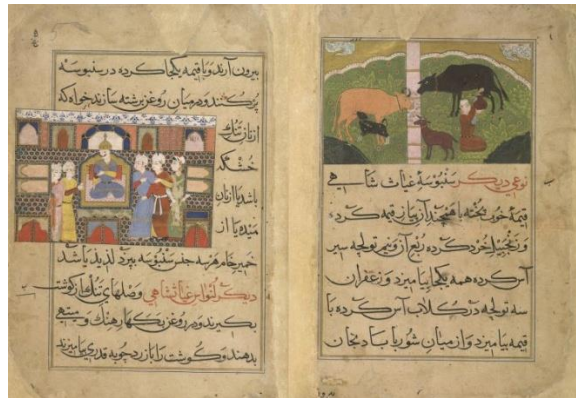 نوعی دیگر سنبوسه غیاث شاهی
قیمه خوب پخته با همچند آن پیاز قیمه کرده
و زنجبیل خرد کرده ربع آن و نیم تولچه سیر
آس کرده همه یکجا بیامیزد و زعفران
سه تولچه در گلاب آس کرده با
قیمه بیامیزد و از میان شوربا بادنجان
بیرون آرند و با قیمه یکجا کرده در سنبوسه
پر کنند و در میان روغن برشته سازند خواه که
از نان تنک
خشکه
باشد یا از نان
میده یا از
خمیر خام هر سه جنس سنبوسه بپزد لذیذ باشد
دیگر غیاث شاهی وصلهای تنک از گوشت
بگیرند و در روغن بگهار هنگ و میتهی
بدهند و گوشت را با زردچوبه قدری بیامیزند